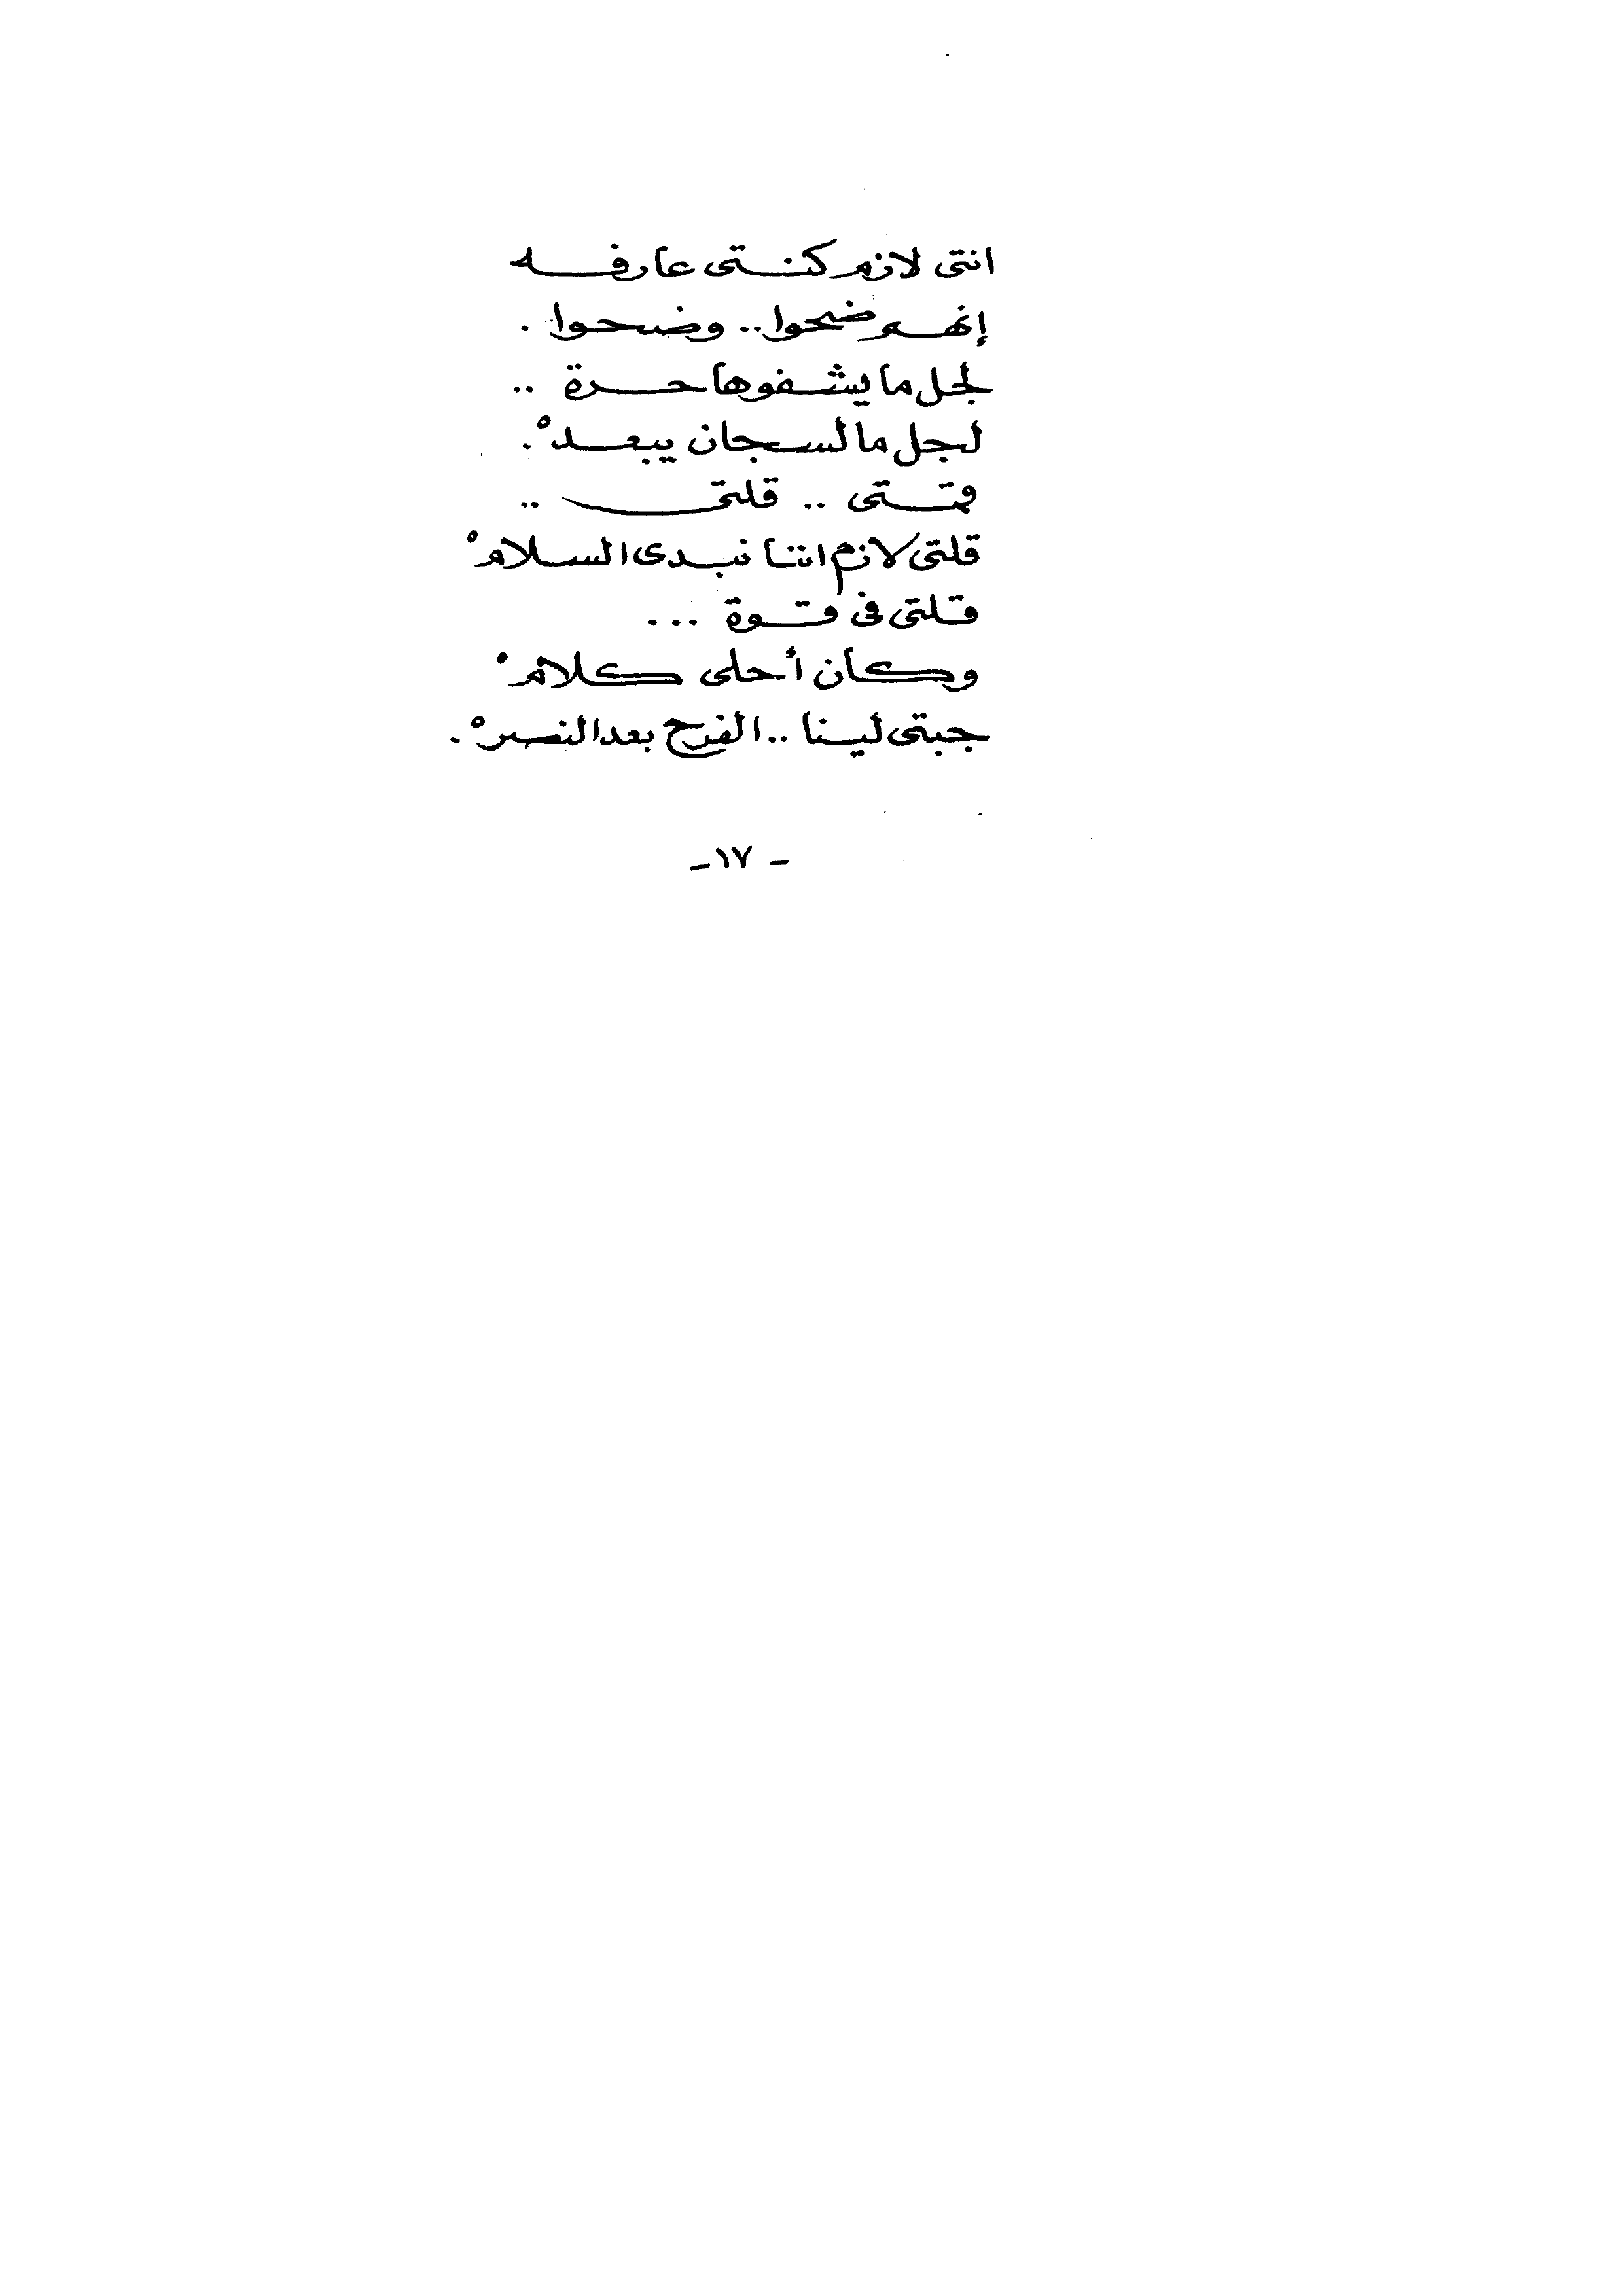 انتى لازم كنتى عارفه
إنهم ضحوا.. وضحوا .
لجل ما يشفوها حرة ..
لجل ما السجان يبعدْ .
قمتى .. قلتى ..
قلتى لازم اننا نبدى السلامْ
قلتى فى قوة ...
وكان أحلى كلامْ
جبتى لينا .. الفرح بعد النصرْ .
- ١٧ -